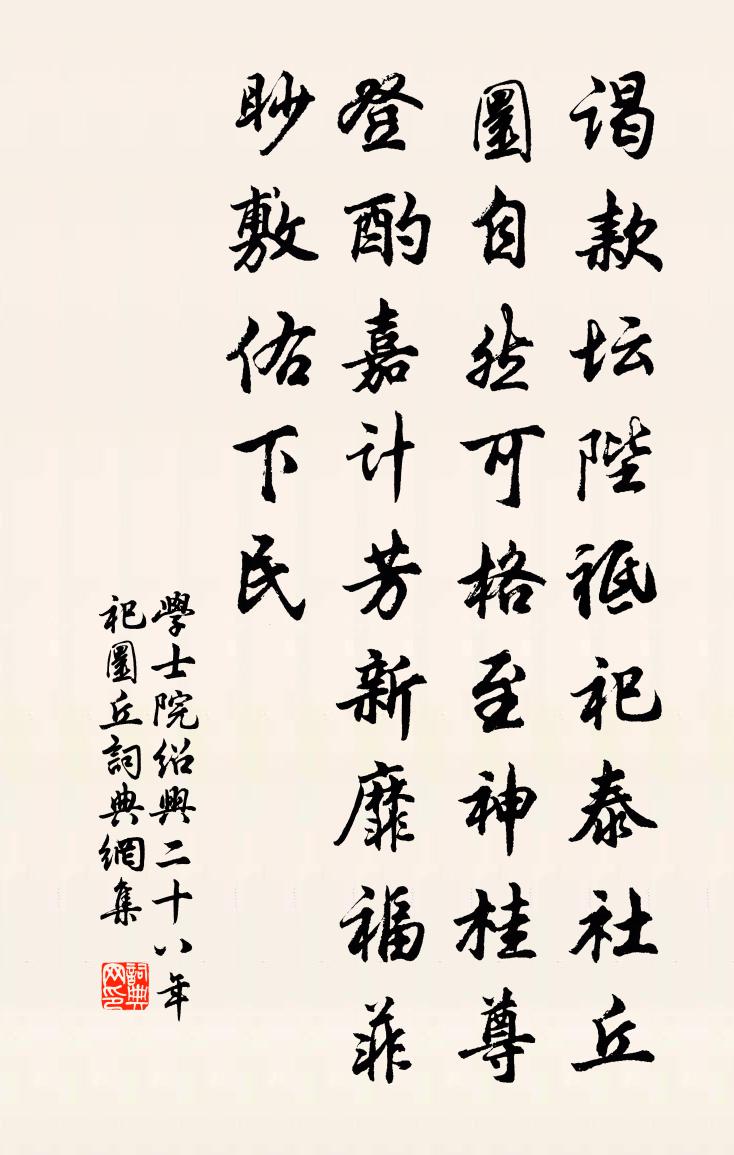 谒款坛陛祗祀泰社丘
圜自然可格至神桂尊
登酌嘉计芳新靡福菲
眇敷佑下民
學士院紹興二十八年
祀圜丘詞典網集
詞典
网印